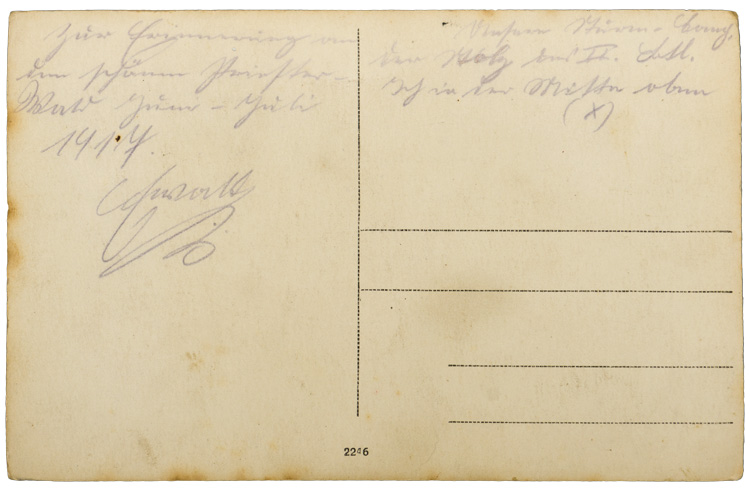 Zur Erinnerung an
den schönen Priester-
Wald Juni – Juli
1917.
Ewald
Unsere Sturm-Komp.
der des II. Btl.
Ich in der Mitte oben
(X)
2246